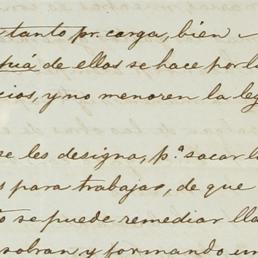 tanto pr. carga, bien
de ellos se hace por l
cios, y no menor en la le
se les designa, p.ª sacar l
s para trabajos, de que
to se puede remediar lla
sobran y formando un